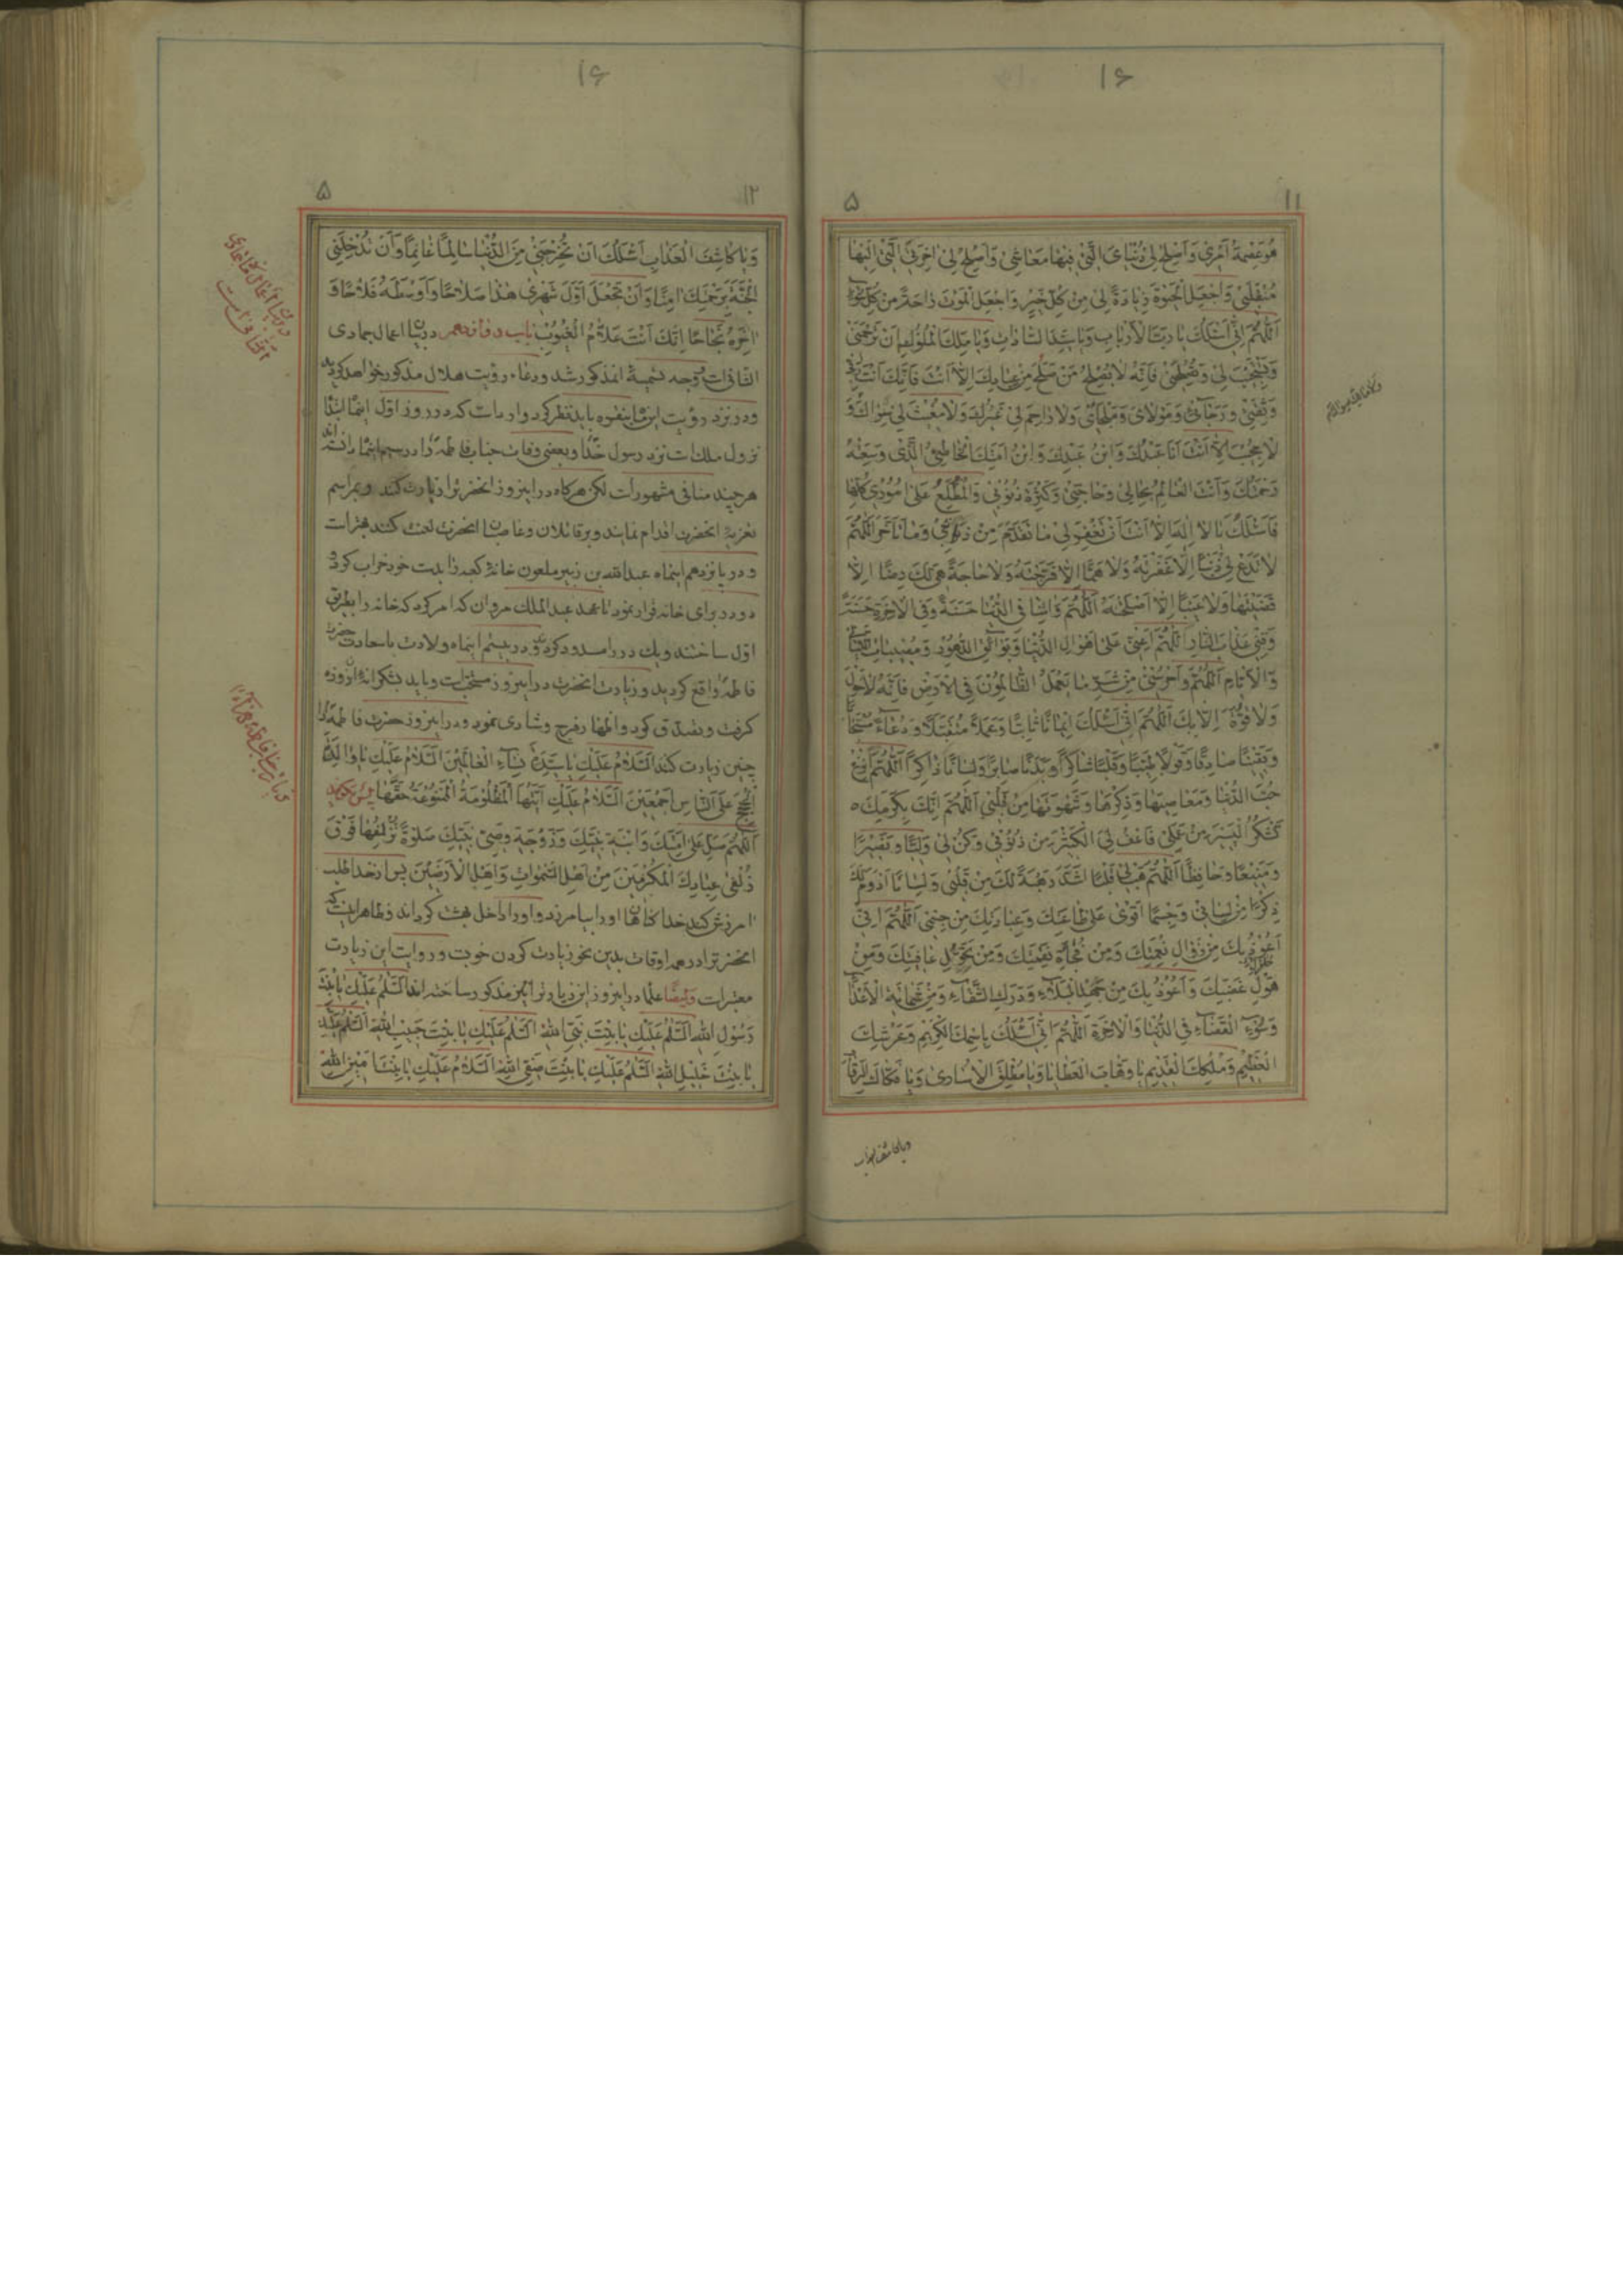 ۱۶
۱۱
۵
هُوَ عِصْمَةُ اَمْرِي وَاَصْلِحْ لِي دُنْيَايَ الَّتِي فِيهَا مَعَاشِي وَاَصْلِحْ لِي اخِرَتِي الَّتِي اِلَيْهَا
مُنْقَلَبِي وَاجْعَلِ الْحَيٰوةَ زِيَادَةً لِي مِنْ كُلِّ خَيْرٍ وَاجْعَلِ الْمَوْتَ رَاحَةً مِنْ كُلِّ سُوءٍ
اَللّٰهُمَّ اِنِّي اَسْئَلُكَ يَا رَبَّ الْاَرْبَابِ وَيَا سَيِّدَ السَّادَاتِ وَيَا مَلِكَ الْمُلُوكِ اَنْ تَرْحَمَنِي
وَتَسْتَجِيبَ لِي وَتُصْلِحَنِي فَاِنَّهُ لَا يُصْلِحُ مَنْ صَلَحَ مِنْ عِبَادِكَ اِلَّا اَنْتَ فَاِنَّكَ اَنْتَ رَبِّي
وَثِقَتِي وَرَجَائِي وَمَوْلَايَ وَمَلْجَائِي وَلَا رَاحِمَ لِي غَيْرُكَ وَلَا مُغِيثَ لِي سِوَاكَ وَ
لَا مُجِيبَ اِلَّا اَنْتَ اَنَا عَبْدُكَ وَابْنُ عَبْدِكَ وَابْنُ اَمَتِكَ الْخَاطِئُ الَّذِي وَسِعَتْهُ
رَحْمَتُكَ وَاَنْتَ الْعَالِمُ بِحَالِي وَحَاجَتِي وَكَثْرَةِ ذُنُوبِي وَالْمُطَّلِعُ عَلَى اُمُورِي كُلِّهَا
فَاَسْئَلُكَ يَا لَا اِلٰهَ اِلَّا اَنْتَ اَنْ تَغْفِرَ لِي مَا تَقَدَّمَ مِنْ ذَنْبِي وَمَا تَاَخَّرَ اَللّٰهُمَّ
لَا تَدَعْ لِي ذَنْبًا اِلَّا غَفَرْتَهُ وَلَا هَمًّا اِلَّا فَرَّجْتَهُ وَلَا حَاجَةً هِيَ لَكَ رِضًا اِلَّا
قَضَيْتَهَا وَلَا عَيْبًا اِلَّا اَصْلَحْتَهُ اَللّٰهُمَّ وَاتِنَا فِي الدُّنْيَا حَسَنَةً وَفِي الْاخِرَةِ حَسَنَةً
وَقِنِي عَذَابَ النَّارِ اَللّٰهُمَّ اَعِنِّي عَلَى اَهْوَالِ الدُّنْيَا وَبَوَائِقِ الدُّهُورِ وَمُصِيبَاتِ اللَّيَالِي
وَالْاَيَّامِ اَللّٰهُمَّ وَاحْرُسْنِي مِنْ شَرِّ مَا يَعْمَلُ الظَّالِمُونَ فِي الْاَرْضِ فَاِنَّهُ لَا حَوْلَ
وَلَا قُوَّةَ اِلَّا بِكَ اَللّٰهُمَّ اِنِّي اَسْئَلُكَ اِيمَانًا ثَابِتًا وَعَمَلًا مُتَقَبَّلًا وَدُعَاءً مُسْتَجَابًا
وَيَقِينًا صَادِقًا وَقَوْلًا طَيِّبًا وَقَلْبًا شَاكِرًا وَبَدَنًا صَابِرًا وَلِسَانًا ذَاكِرًا اَللّٰهُمَّ انْزِعْ
حُبَّ الدُّنْيَا وَمَعَاصِيهَا وَذِكْرَهَا وَشَهْوَتَهَا مِنْ قَلْبِي اَللّٰهُمَّ اِنَّكَ بِكَرَمِكَ
تَشْكُرُ الْيَسِيرَ مِنْ عَمَلِي فَاعْفُ لِيَ الْكَثِيرَ مِنْ ذُنُوبِي وَكُنْ لِي وَلِيًّا وَنَصِيرًا
وَمُعِينًا وَحَافِظًا اَللّٰهُمَّ هَبْ لِي قَلْبًا اَشَدَّ رَهْبَةً لَكَ مِنْ قَلْبِي وَلِسَانًا اَدْوَمَ لَكَ
ذِكْرًا مِنْ لِسَانِي وَجِسْمًا اَقْوٰى عَلَى طَاعَتِكَ وَعِبَادَتِكَ مِنْ جِسْمِي اَللّٰهُمَّ اِنِّي
اَعُوذُ بِكَ مِنْ زَوَالِ نِعْمَتِكَ وَمِنْ فُجْأَةِ نَقِمَتِكَ وَمِنْ تَحْوِيلِ عَافِيَتِكَ وَمِنْ
هَوْلِ غَضَبِكَ وَاَعُوذُ بِكَ مِنْ جَهْدِ الْبَلَاءِ وَدَرَكِ الشَّقَاءِ وَمِنْ شَمَاتَةِ الْاَعْدَاءِ
وَسُوءِ الْقَضَاءِ فِي الدُّنْيَا وَالْاخِرَةِ اَللّٰهُمَّ اِنِّي اَسْئَلُكَ بِاسْمِكَ الْكَرِيمِ وَعَرْشِكَ
الْعَظِيمِ وَمُلْكِكَ الْقَدِيمِ يَا وَهَّابَ الْعَطَايَا وَيَا مُطْلِقَ الْاُسَارٰى وَيَا فَكَّاكَ الرِّقَابِ
ویا کاشف العذاب
۱۶
۱۲
۵
وَيَا كَاشِفَ الْعَذَابِ اَسْئَلُكَ اَنْ تُخْرِجَنِي مِنَ الدُّنْيَا سَالِمًا غَانِمًا وَاَنْ تُدْخِلَنِي
الْجَنَّةَ بِرَحْمَتِكَ امِنًا وَاَنْ تَجْعَلَ اَوَّلَ شَهْرِي هٰذَا صَلَاحًا وَاَوْسَطَهُ فَلَاحًا وَ
اخِرَهُ نَجَاحًا اِنَّكَ اَنْتَ عَلَّامُ الْغُيُوبِ باب دوازدهم در بیان اعمال جمادی
الثانی است وجه تسمیهٔ آن مذکور شد و دعاء رؤیت هلال مذکور خواهد گردید
ودر نزد رؤیت این ماه بنقره باید نظر کرد و روایت است که در روز اول اینماه ابتدا
نزول ملک است نزد رسول خدا و بعضی وفات جناب فاطمه را در سیم اینماه دانسته اند
هر چند منافی مشهور است لکن هرگاه در اینروز آنحضرترا زیارت کند و بمراسم
تعزیهٔ آنحضرت اقدام نمایند و بر قاتلان وغاصبان آنحضرت لعنت کنند بهتر است
ودر پانزدهم اینماه عبدالله بن زبیر ملعون خانهٔ کعبه را بدست خود خراب کرد و
دو در برای خانه قرار نمود تا عهد عبدالملک مروان که امر کرد که خانه را بطریق
اول ساختند و یک در را مسدود کردند و در بیستم اینماه ولادت با سعادت حضرت
فاطمه واقع گردید و زیارت آنحضرت در اینروز مستحب است و باید بشکرانهٔ آن روزه
گرفت وتصدق کرد و اظهار فرح وشادی نمود و در اینروز حضرت فاطمه را
چنین زیارت کند اَلسَّلَامُ عَلَيْكِ يَا سَيِّدَةَ نِسَاءِ الْعَالَمِينَ اَلسَّلَامُ عَلَيْكِ يَا وَالِدَةَ
الْحُجَجِ عَلَى النَّاسِ اَجْمَعِينَ اَلسَّلَامُ عَلَيْكِ اَيَّتُهَا الْمَظْلُومَةُ الْمَمْنُوعَةُ حَقَّهَا پس بگوید
اَللّٰهُمَّ صَلِّ عَلَى اَمَتِكَ وَابْنَةِ نَبِيِّكَ وَزَوْجَةِ وَصِيِّ نَبِيِّكَ صَلٰوةً تُزْلِفُهَا فَوْقَ
زُلْفٰى عِبَادِكَ الْمُكْرَمِينَ مِنْ اَهْلِ السَّمٰوَاتِ وَاَهْلِ الْاَرَضِينَ پس از خدا طلب
امرزش کند خدا گناهان او را بیامرزد و او را داخل بهشت گرداند وظاهر اینست که
آنحضرترا در همه اوقات بدین نحو زیارت کردن خوبست و روایت این زیارت
معتبر است وایضًا علما در اینروز این زیارترا نیز مذکور ساخته اند اَلسَّلَامُ عَلَيْكِ يَا بِنْتَ
رَسُولِ اللّٰهِ اَلسَّلَامُ عَلَيْكِ يَا بِنْتَ نَبِيِّ اللّٰهِ اَلسَّلَامُ عَلَيْكِ يَا بِنْتَ حَبِيبِ اللّٰهِ اَلسَّلَامُ عَلَيْكِ
يَا بِنْتَ خَلِيلِ اللّٰهِ اَلسَّلَامُ عَلَيْكِ يَا بِنْتَ صَفِيِّ اللّٰهِ اَلسَّلَامُ عَلَيْكِ يَا بِنْتَ اَمِينِ اللّٰهِ
در بیان اعمال ماه جمادی
الثانی است